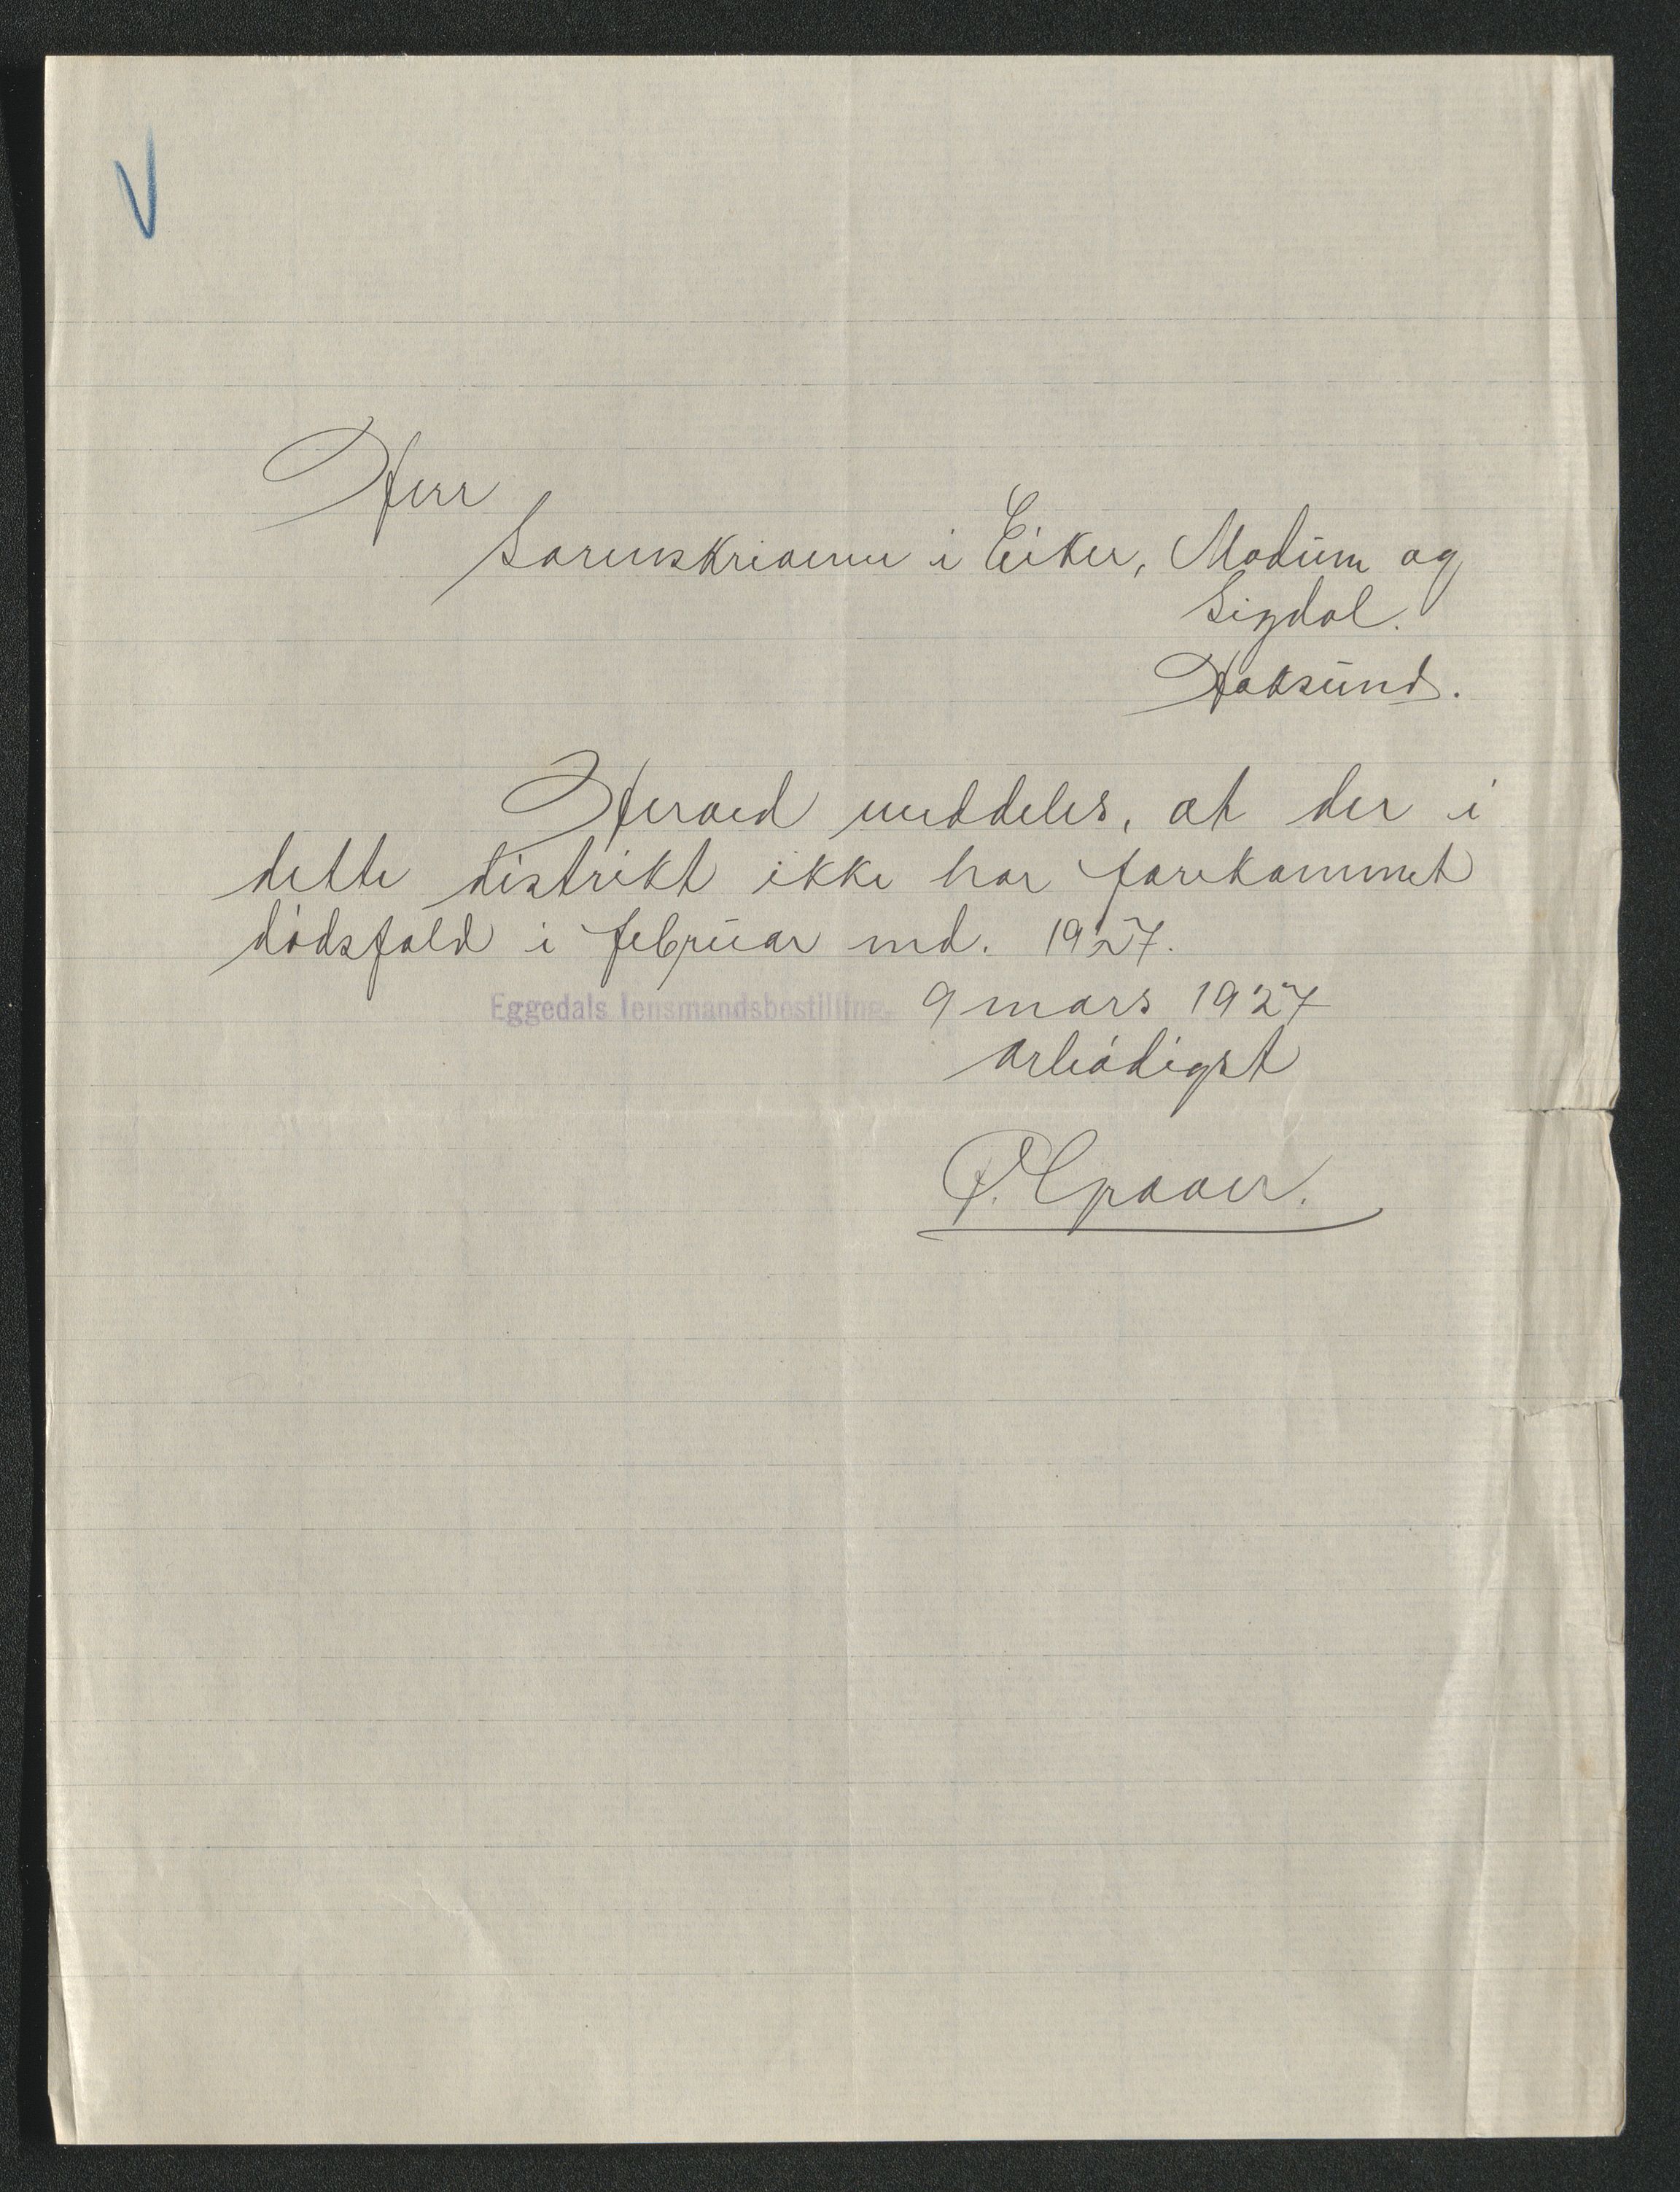 V
Herr
Sorenskriveren i Eiker, Modum og
Sigdal.
Haksund.
Herved meddeles, at der i
dette distrikt ikke har forekommet
dødsfald i februar md. 1927.
Eggedals lensmandsbestilling, 9 mars 1927
ærbødigst
P.